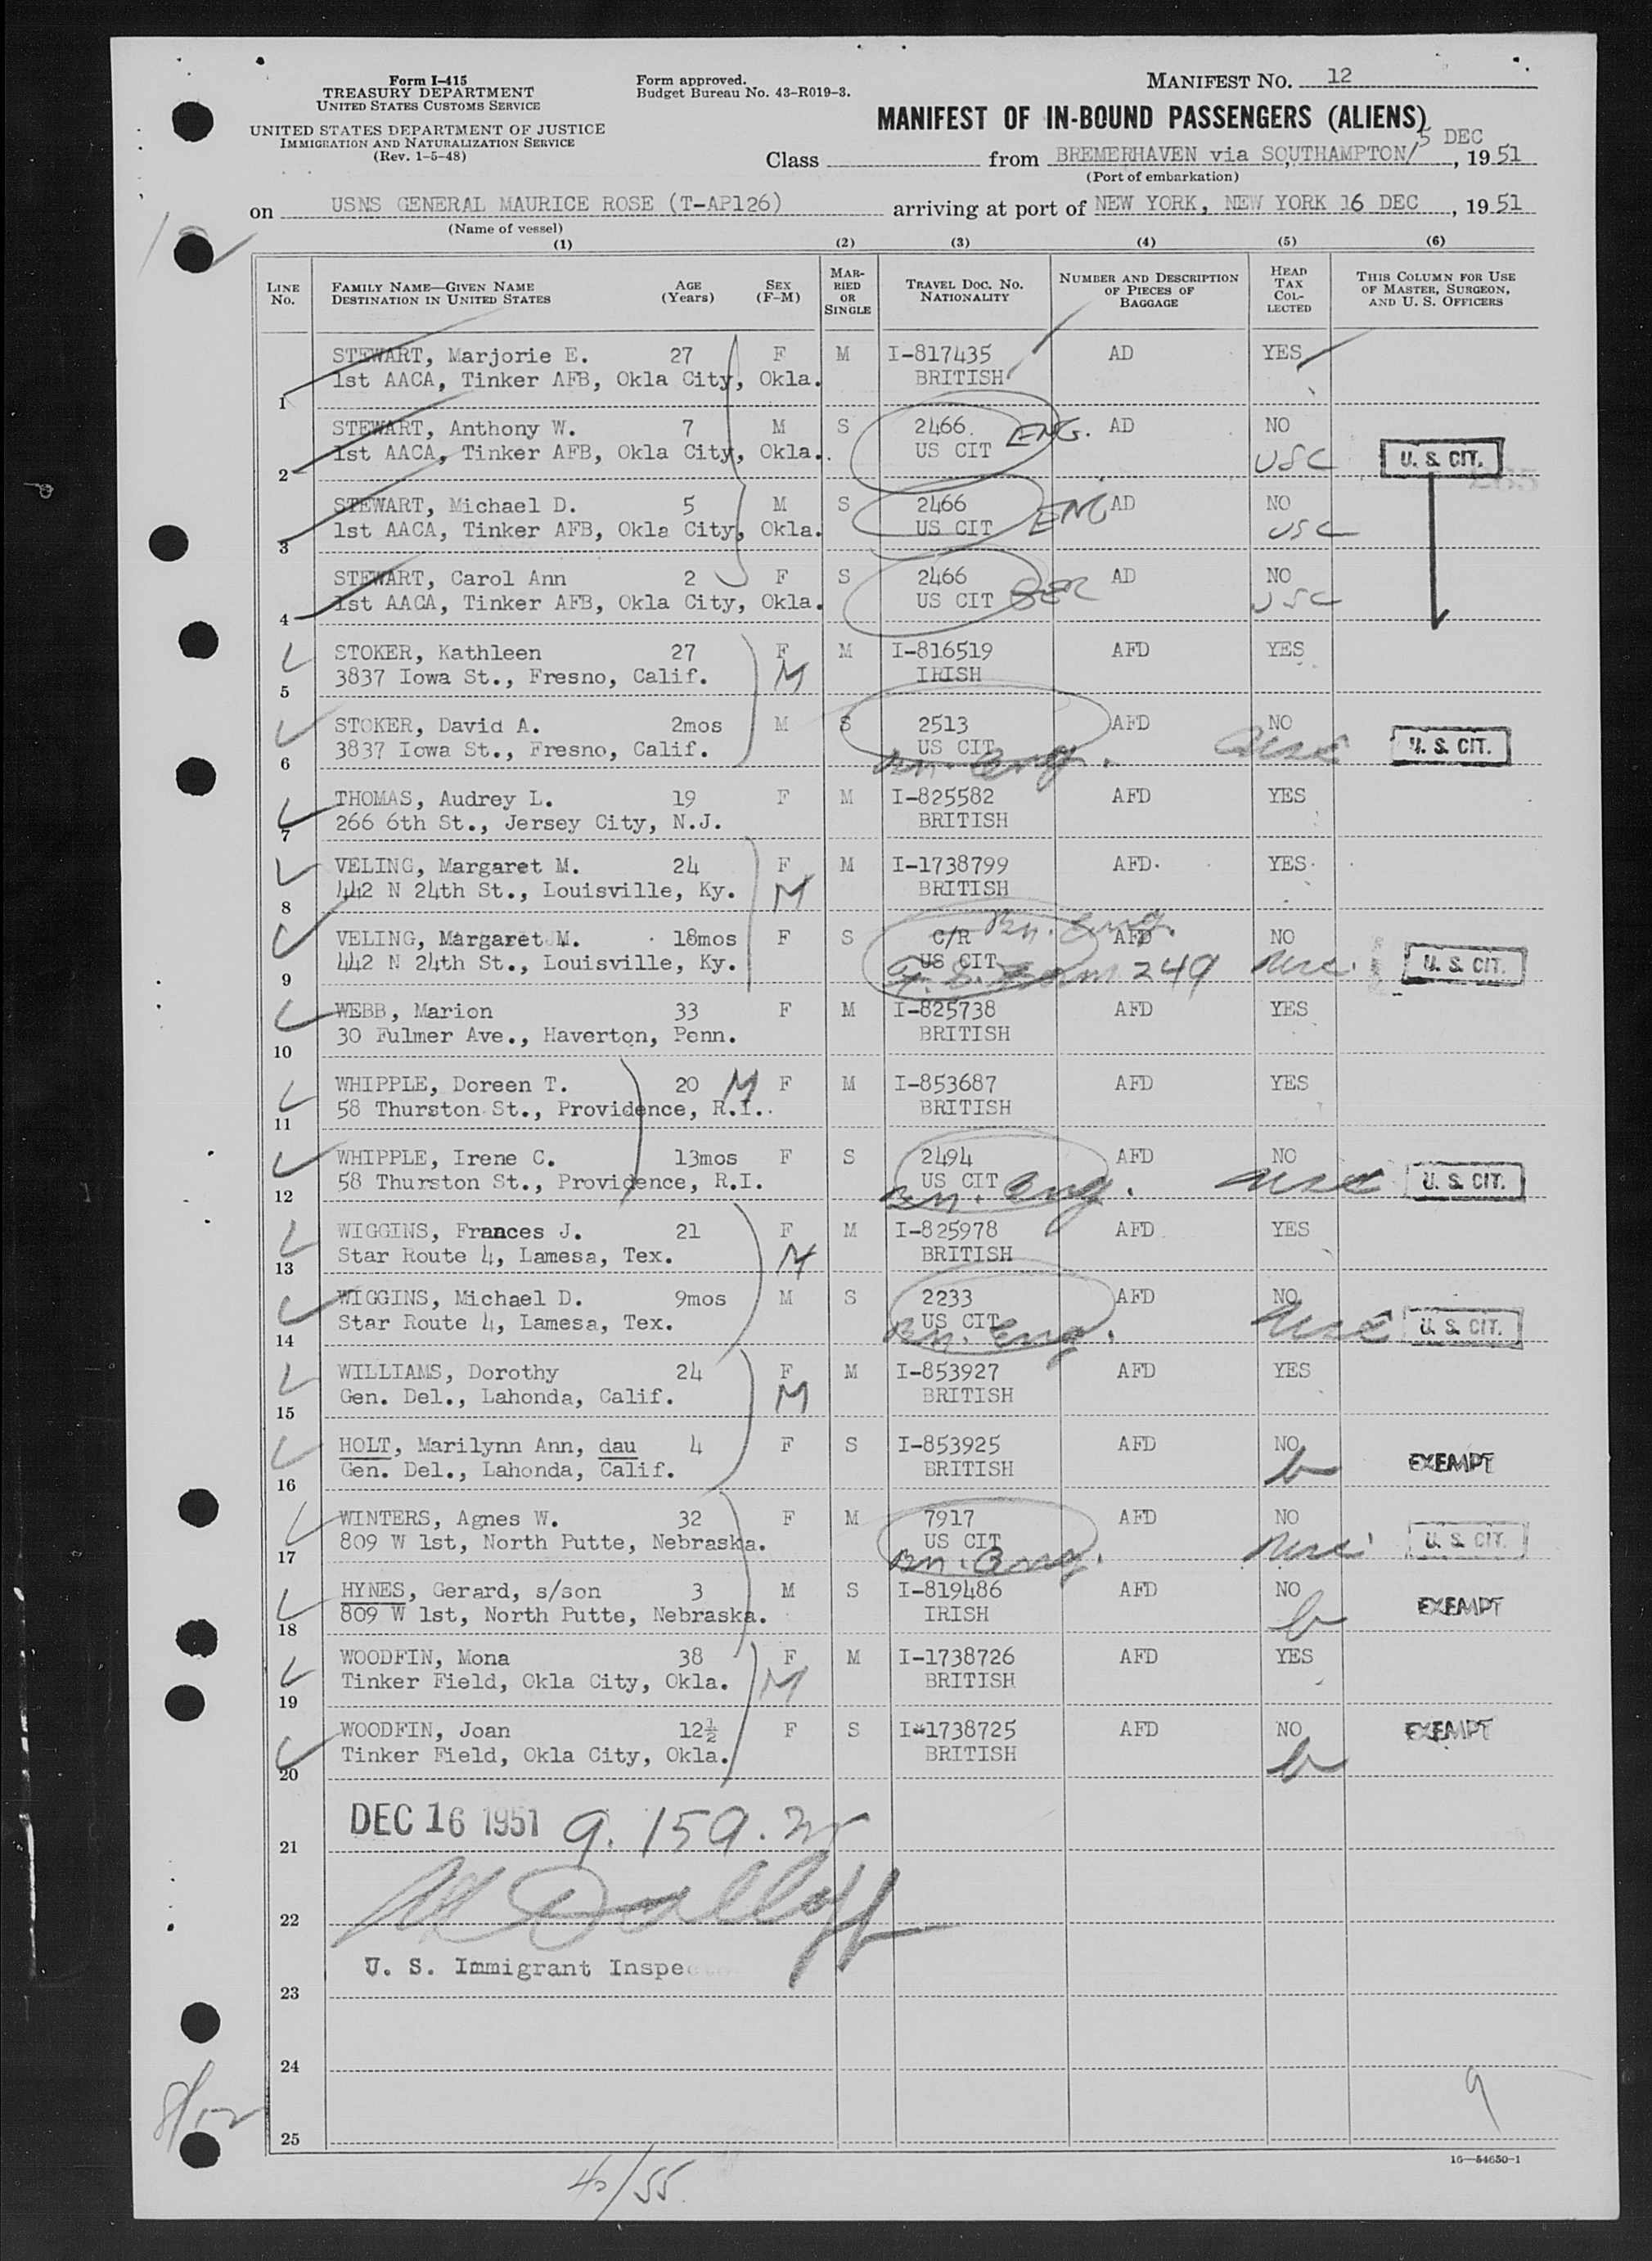 Form I-415
TREASURY DEPARTMENT
UNITED STATES CUSTOMS SERVICE
UNITED STATES DEPARTMENT OF JUSTICE
IMMIGRATION AND NATURALIZATION SERVICE
(Rev. 1-5-48)
Form approved.
Budget Bureau No. 43-R019-3.
MANIFEST NO. 12
MANIFEST OF IN-BOUND PASSENGERS (ALIENS)
Class from BREMERHAVEN via SOUTHAMPTON/ 5 DEC, 1951
(Port of embarkation)
on USNS GENERAL MAURICE ROSE (T-AP126) arriving at port of NEW YORK, NEW YORK 16 DEC, 1951
(Name of vessel)
(1) (2) (3) (4) (5) (6)
LINE No. FAMILY NAME—GIVEN NAME DESTINATION IN UNITED STATES AGE (Years) SEX (F-M) MARRIED OR SINGLE TRAVEL DOC. NO. NATIONALITY NUMBER AND DESCRIPTION OF PIECES OF BAGGAGE HEAD TAX COLLECTED THIS COLUMN FOR USE OF MASTER, SURGEON, AND U. S. OFFICERS
STEWART, Marjorie E. 27 F M I-817435 AD YES
1 1st AACA, Tinker AFB, Okla City, Okla. BRITISH
STEWART, Anthony W. 7 M S 2466 ENG. AD NO
2 1st AACA, Tinker AFB, Okla City, Okla. US CIT USC U. S. CIT.
STEWART, Michael D. 5 M S 2466 ENG AD NO
3 1st AACA, Tinker AFB, Okla City, Okla. US CIT USC
STEWART, Carol Ann 2 F S 2466 AD NO
4 1st AACA, Tinker AFB, Okla City, Okla. US CIT GER USC
STOKER, Kathleen 27 F M I-816519 AFD YES
5 3837 Iowa St., Fresno, Calif. M IRISH
STOKER, David A. 2mos M S 2513 AFD NO
6 3837 Iowa St., Fresno, Calif. US CIT Bn. Eng. USC U. S. CIT.
THOMAS, Audrey L. 19 F M I-825582 AFD YES
7 266 6th St., Jersey City, N.J. BRITISH
VELING, Margaret M. 24 F M I-1738799 AFD YES
8 442 N 24th St., Louisville, Ky. M BRITISH
VELING, Margaret M. 18mos F S C/R Bn. Eng. AFD NO
9 442 N 24th St., Louisville, Ky. US CIT 249 USC. U. S. CIT.
WEBB, Marion 33 F M I-825738 AFD YES
10 30 Fulmer Ave., Haverton, Penn. BRITISH
WHIPPLE, Doreen T. 20 M F M I-853687 AFD YES
11 58 Thurston St., Providence, R.I. BRITISH
WHIPPLE, Irene C. 13mos F S 2494 AFD NO
12 58 Thurston St., Providence, R.I. US CIT Bn. Eng. USC U. S. CIT.
WIGGINS, Frances J. 21 F M I-825978 AFD YES
13 Star Route 4, Lamesa, Tex. M BRITISH
WIGGINS, Michael D. 9mos M S 2233 AFD NO
14 Star Route 4, Lamesa, Tex. US CIT Bn. Eng. USC U. S. CIT.
WILLIAMS, Dorothy 24 F M I-853927 AFD YES
15 Gen. Del., Lahonda, Calif. M BRITISH
HOLT, Marilynn Ann, dau 4 F S I-853925 AFD NO
16 Gen. Del., Lahonda, Calif. BRITISH EXEMPT
WINTERS, Agnes W. 32 F M 7917 AFD NO
17 809 W 1st, North Putte, Nebraska. US CIT Bn. Eng. USC U. S. CIT.
HYNES, Gerard, s/son 3 M S I-819486 AFD NO
18 809 W 1st, North Putte, Nebraska. IRISH EXEMPT
WOODFIN, Mona 38 F M I-1738726 AFD YES
19 Tinker Field, Okla City, Okla. M BRITISH
WOODFIN, Joan 12½ F S I-1738725 AFD NO EXEMPT
20 Tinker Field, Okla City, Okla. BRITISH
DEC 16 1951 9.159.
21
22
U. S. Immigrant Inspector
23
24
9
25
16—54650-1
40/55